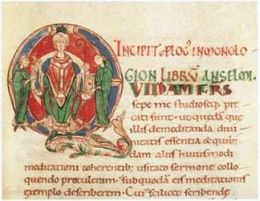 INCIPIT PLOG' IN MONOLO
GION LIBRV ANSELMI.
VIDAM FRS
sepe me studioseq; pre
cati sunt. ut quedā que
illis de meditanda divi
nitatis essentia & qui
dam aliis huiusmodi
meditationi coherentib; usitato sermone collo
quendo protuleram. sub quodā eis meditationis
exemplo describerem. Cui scilicet scribende